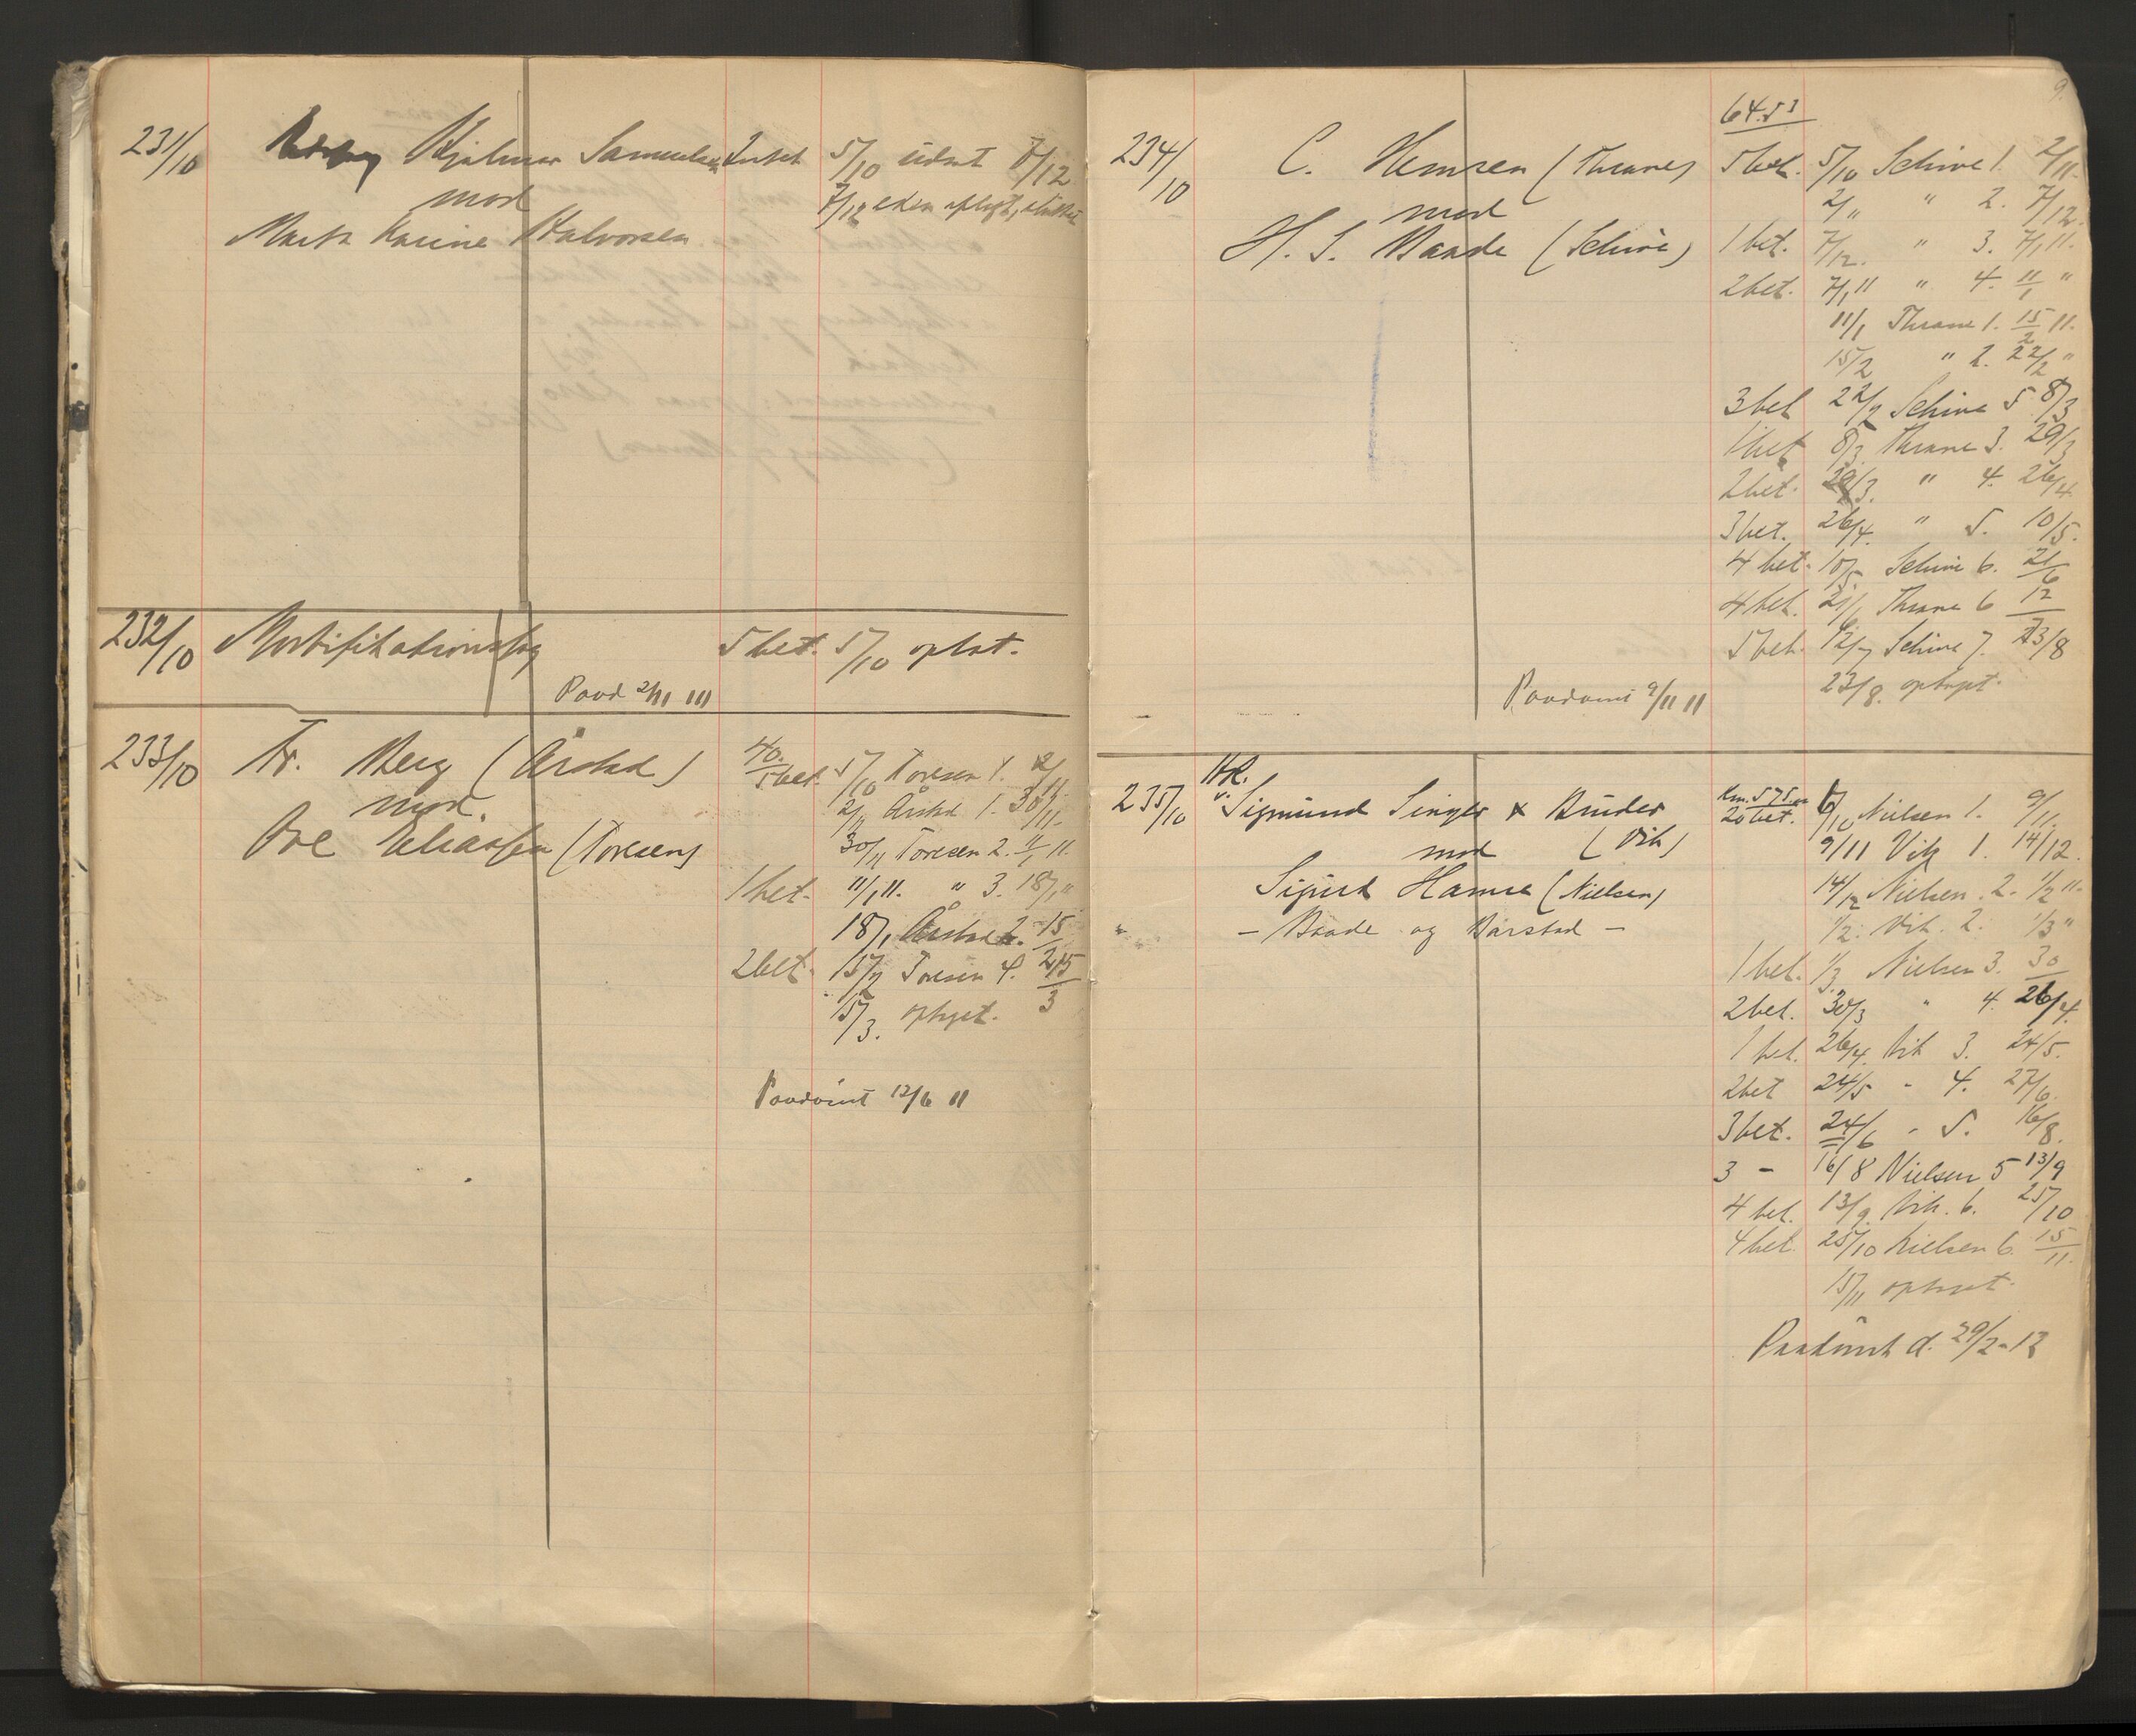 231/10 Hjalmar Samuelsen 5/10 udsat 7/12
mod 7/12
Marta Karine Halvorsen
232/10 Mortifikationssag 5 bet. 5/10 optat.
Paad 2/11 111
233/10 Fr. Berg (Årstad) 40. 5 bet. 5/10 Toresen 1. 2/11
mod. 2/11 Årstad 1. 30/11.
Ove Eliassen (Toresen) 30/11 Toresen 2. 11/1 11.
1 bet. 11/1 11. " 3. 18/1 "
18/1 Årstad 2. 15/2
2 bet. 15/2 Toresen 4. 15/3
15/3. optaget.
Paadømt 12/6 11
9.
64.53
234/10 C. Hemsen (Thrane) 5 bet. 5/10 Schive 1. 2/11.
mod 2/" " 2. 7/12.
H. S. Baade (Schive) 1 bet. 7/12. " 3. 7/1 11.
2 bet. 7/1 11 " 4. 11/1 "
11/1 Thrane 1. 15/2 11.
15/2 " 2. 22/2 "
3 bet 22/2 Schive 5 8/3
1 bet 8/3 Thrane 3. 29/3
2 bet. 29/3. " 4. 26/4.
3 bet. 26/4. " 5. 10/5.
4 bet. 10/5. Schive 6. 21/6
4 bet. 21/6 Thrane 6 12/7
5 bet. 12/7 Schive 7. 23/8
23/8. optaget.
Paadømt 9/11 11
HR.
235/10 Sigmund Singer & Bruder Km. 575. 20 bet. 6/10 Nielsen 1. 9/11.
mod (Vik) 9/11 Vik 1. 14/12.
Sigurd Hamre (Nielsen) 14/12 Nielsen. 2. 1/2 11.
- Baade og Barstad - 1/2. Vik. 2. 1/3 "
1 bet. 1/3. Nielsen 3. 30
2 bet. 30/3 " 4. 26/4.
1 bet. 26/4. Vik 3. 24/5.
2 bet 24/5 - 4. 27/6.
3 bet. 24/6 - 5. 16/8.
3 - 16/8 Nielsen 5 13/9
4 bet. 13/9. Vik. 6. 25/10
4 bet. 25/10 Nielsen 6. 15/11.
15/11 optaget.
Paadømt d. 29/2-12